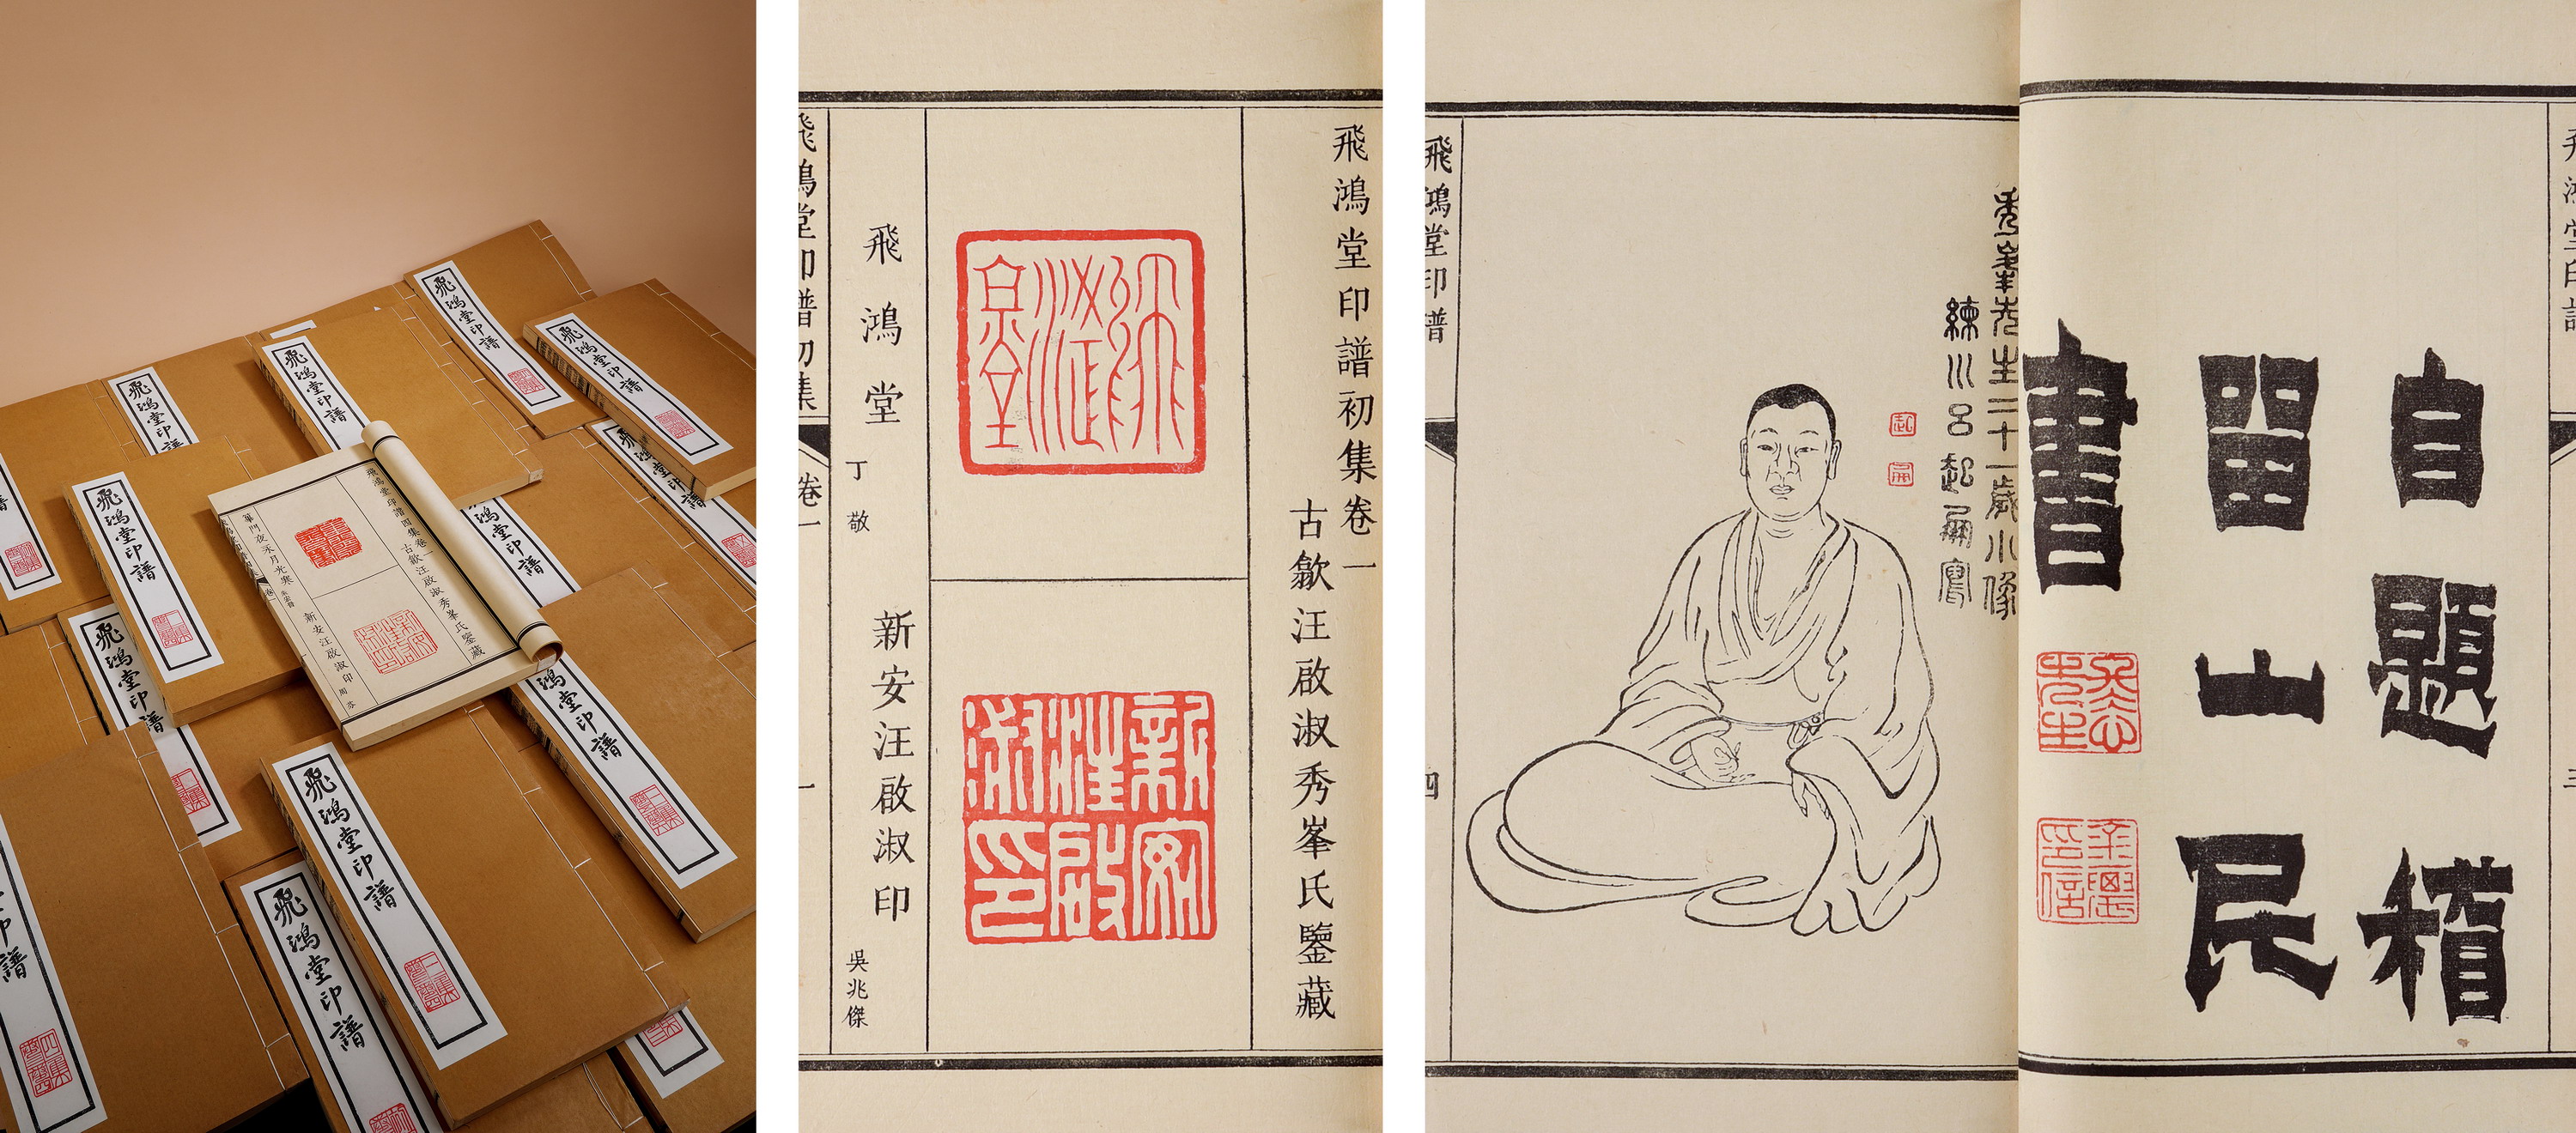 飛鴻堂印譜
飛鴻堂印譜
飛鴻堂印譜
飛鴻堂印譜
飛鴻堂印譜
飛鴻堂印譜
飛鴻堂印譜
飛鴻堂印譜
飛鴻堂印譜四集卷一
古歙汪啟淑秀峯氏鑒藏
新安汪啟淑印
飛鴻堂印譜初集卷一
古歙汪啟淑秀峯氏鑒藏
飛鴻堂
新安汪啟淑印
飛鴻堂
丁敬
新安汪啟淑印
吳兆傑
飛鴻堂印譜初集
卷一
一
自題稽
留山民
書
秀峯先生二十一歲小像
練川呂起鳳寫
飛鴻堂印譜
四